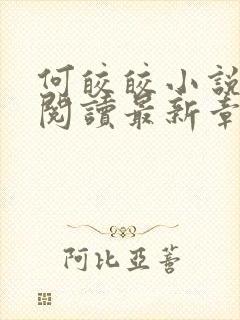 何皎皎小說
閱讀最新章
阿比亞蒼